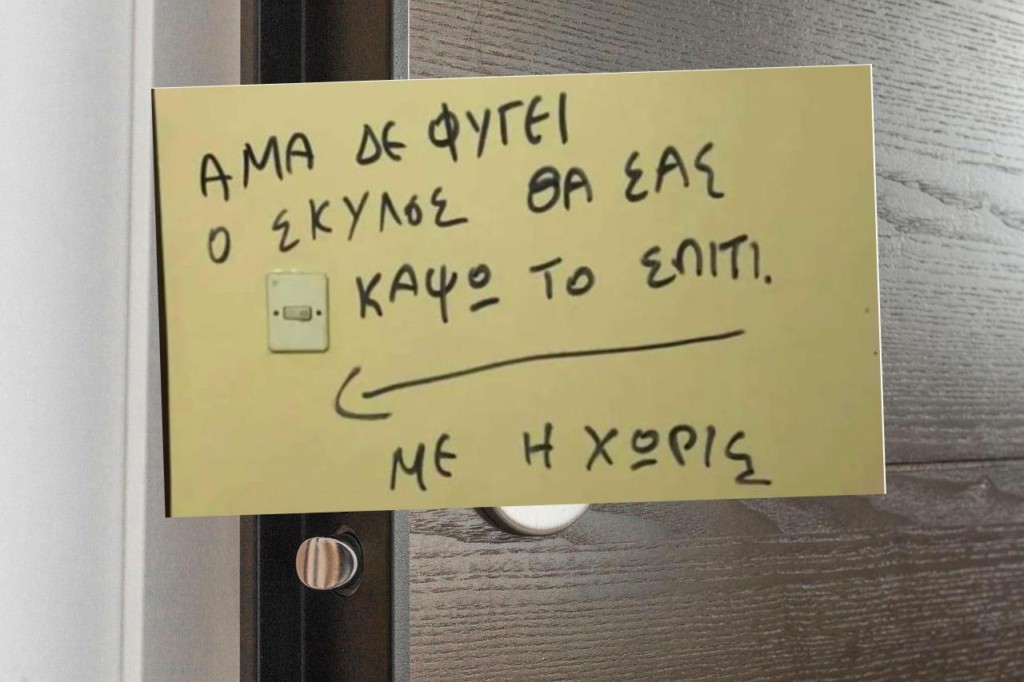 ΑΜΑ ΔΕ ΦΥΓΕΙ
Ο ΣΚΥΛΟΣ ΘΑ ΣΑΣ
ΚΑΨΩ ΤΟ ΣΠΙΤΙ.
ΜΕ Η ΧΩΡΙΣ